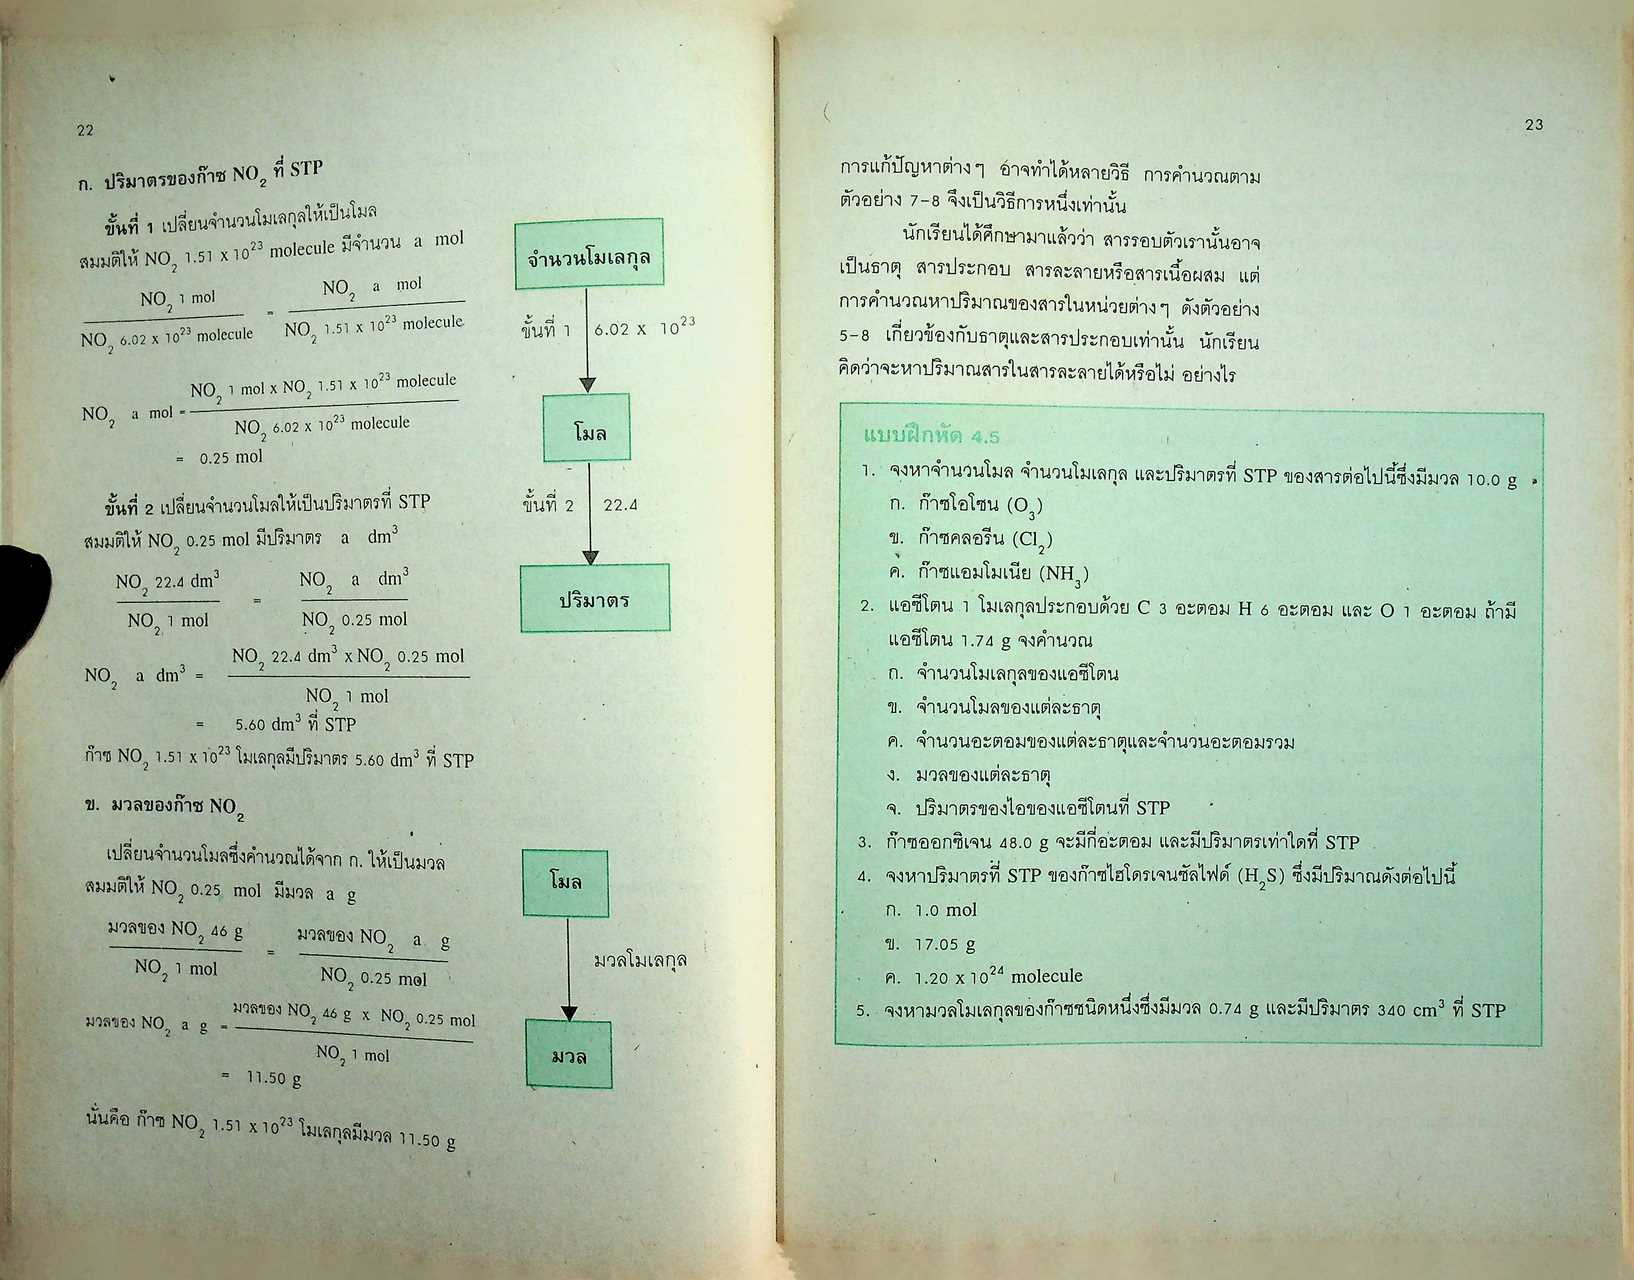 22
ก. ปริมาตรของก๊าซ NO₂ ที่ STP
ขั้นที่ 1 เปลี่ยนจำนวนโมเลกุลให้เป็นโมล
สมมติให้ NO₂ 1.51 x 10²³ molecule มีจำนวน a mol
NO₂ 1 mol / NO₂ 6.02 x 10²³ molecule = NO₂ a mol / NO₂ 1.51 x 10²³ molecule
NO₂ a mol = NO₂ 1 mol x NO₂ 1.51 x 10²³ molecule / NO₂ 6.02 x 10²³ molecule
= 0.25 mol
ขั้นที่ 2 เปลี่ยนจำนวนโมลให้เป็นปริมาตรที่ STP
สมมติให้ NO₂ 0.25 mol มีปริมาตร a dm³
NO₂ 22.4 dm³ / NO₂ 1 mol = NO₂ a dm³ / NO₂ 0.25 mol
NO₂ a dm³ = NO₂ 22.4 dm³ x NO₂ 0.25 mol / NO₂ 1 mol
= 5.60 dm³ ที่ STP
ก๊าซ NO₂ 1.51 x 10²³ โมเลกุลมีปริมาตร 5.60 dm³ ที่ STP
จำนวนโมเลกุล
ขั้นที่ 1 6.02 x 10²³
โมล
ขั้นที่ 2 22.4
ปริมาตร
ข. มวลของก๊าซ NO₂
เปลี่ยนจำนวนโมลซึ่งคำนวณได้จาก ก. ให้เป็นมวล
สมมติให้ NO₂ 0.25 mol มีมวล a g
มวลของ NO₂ 46 g / NO₂ 1 mol = มวลของ NO₂ a g / NO₂ 0.25 mol
มวลของ NO₂ a g = มวลของ NO₂ 46 g x NO₂ 0.25 mol / NO₂ 1 mol
= 11.50 g
นั่นคือ ก๊าซ NO₂ 1.51 x 10²³ โมเลกุลมีมวล 11.50 g
โมล
มวลโมเลกุล
มวล
23
การแก้ปัญหาต่างๆ อาจทำได้หลายวิธี การคำนวณตาม
ตัวอย่าง 7-8 จึงเป็นวิธีการหนึ่งเท่านั้น
นักเรียนได้ศึกษามาแล้วว่า สารรอบตัวเรานั้นอาจ
เป็นธาตุ สารประกอบ สารละลายหรือสารเนื้อผสม แต่
การคำนวณหาปริมาณของสารในหน่วยต่างๆ ดังตัวอย่าง
5-8 เกี่ยวข้องกับธาตุและสารประกอบเท่านั้น นักเรียน
คิดว่าจะหาปริมาณสารในสารละลายได้หรือไม่ อย่างไร
แบบฝึกหัด 4.5
1. จงหาจำนวนโมล จำนวนโมเลกุล และปริมาตรที่ STP ของสารต่อไปนี้ซึ่งมีมวล 10.0 g
ก. ก๊าซโอโซน (O₃)
ข. ก๊าซคลอรีน (Cl₂)
ค. ก๊าซแอมโมเนีย (NH₃)
2. แอซีโตน 1 โมเลกุลประกอบด้วย C 3 อะตอม H 6 อะตอม และ O 1 อะตอม ถ้ามี
แอซีโตน 1.74 g จงคำนวณ
ก. จำนวนโมเลกุลของแอซีโตน
ข. จำนวนโมลของแต่ละธาตุ
ค. จำนวนอะตอมของแต่ละธาตุและจำนวนอะตอมรวม
ง. มวลของแต่ละธาตุ
จ. ปริมาตรของไอของแอซีโตนที่ STP
3. ก๊าซออกซิเจน 48.0 g จะมีกี่อะตอม และมีปริมาตรเท่าใดที่ STP
4. จงหาปริมาตรที่ STP ของก๊าซไฮโดรเจนซัลไฟด์ (H₂S) ซึ่งมีปริมาณดังต่อไปนี้
ก. 1.0 mol
ข. 17.05 g
ค. 1.20 x 10²⁴ molecule
5. จงหามวลโมเลกุลของก๊าซชนิดหนึ่งซึ่งมีมวล 0.74 g และมีปริมาตร 340 cm³ ที่ STP